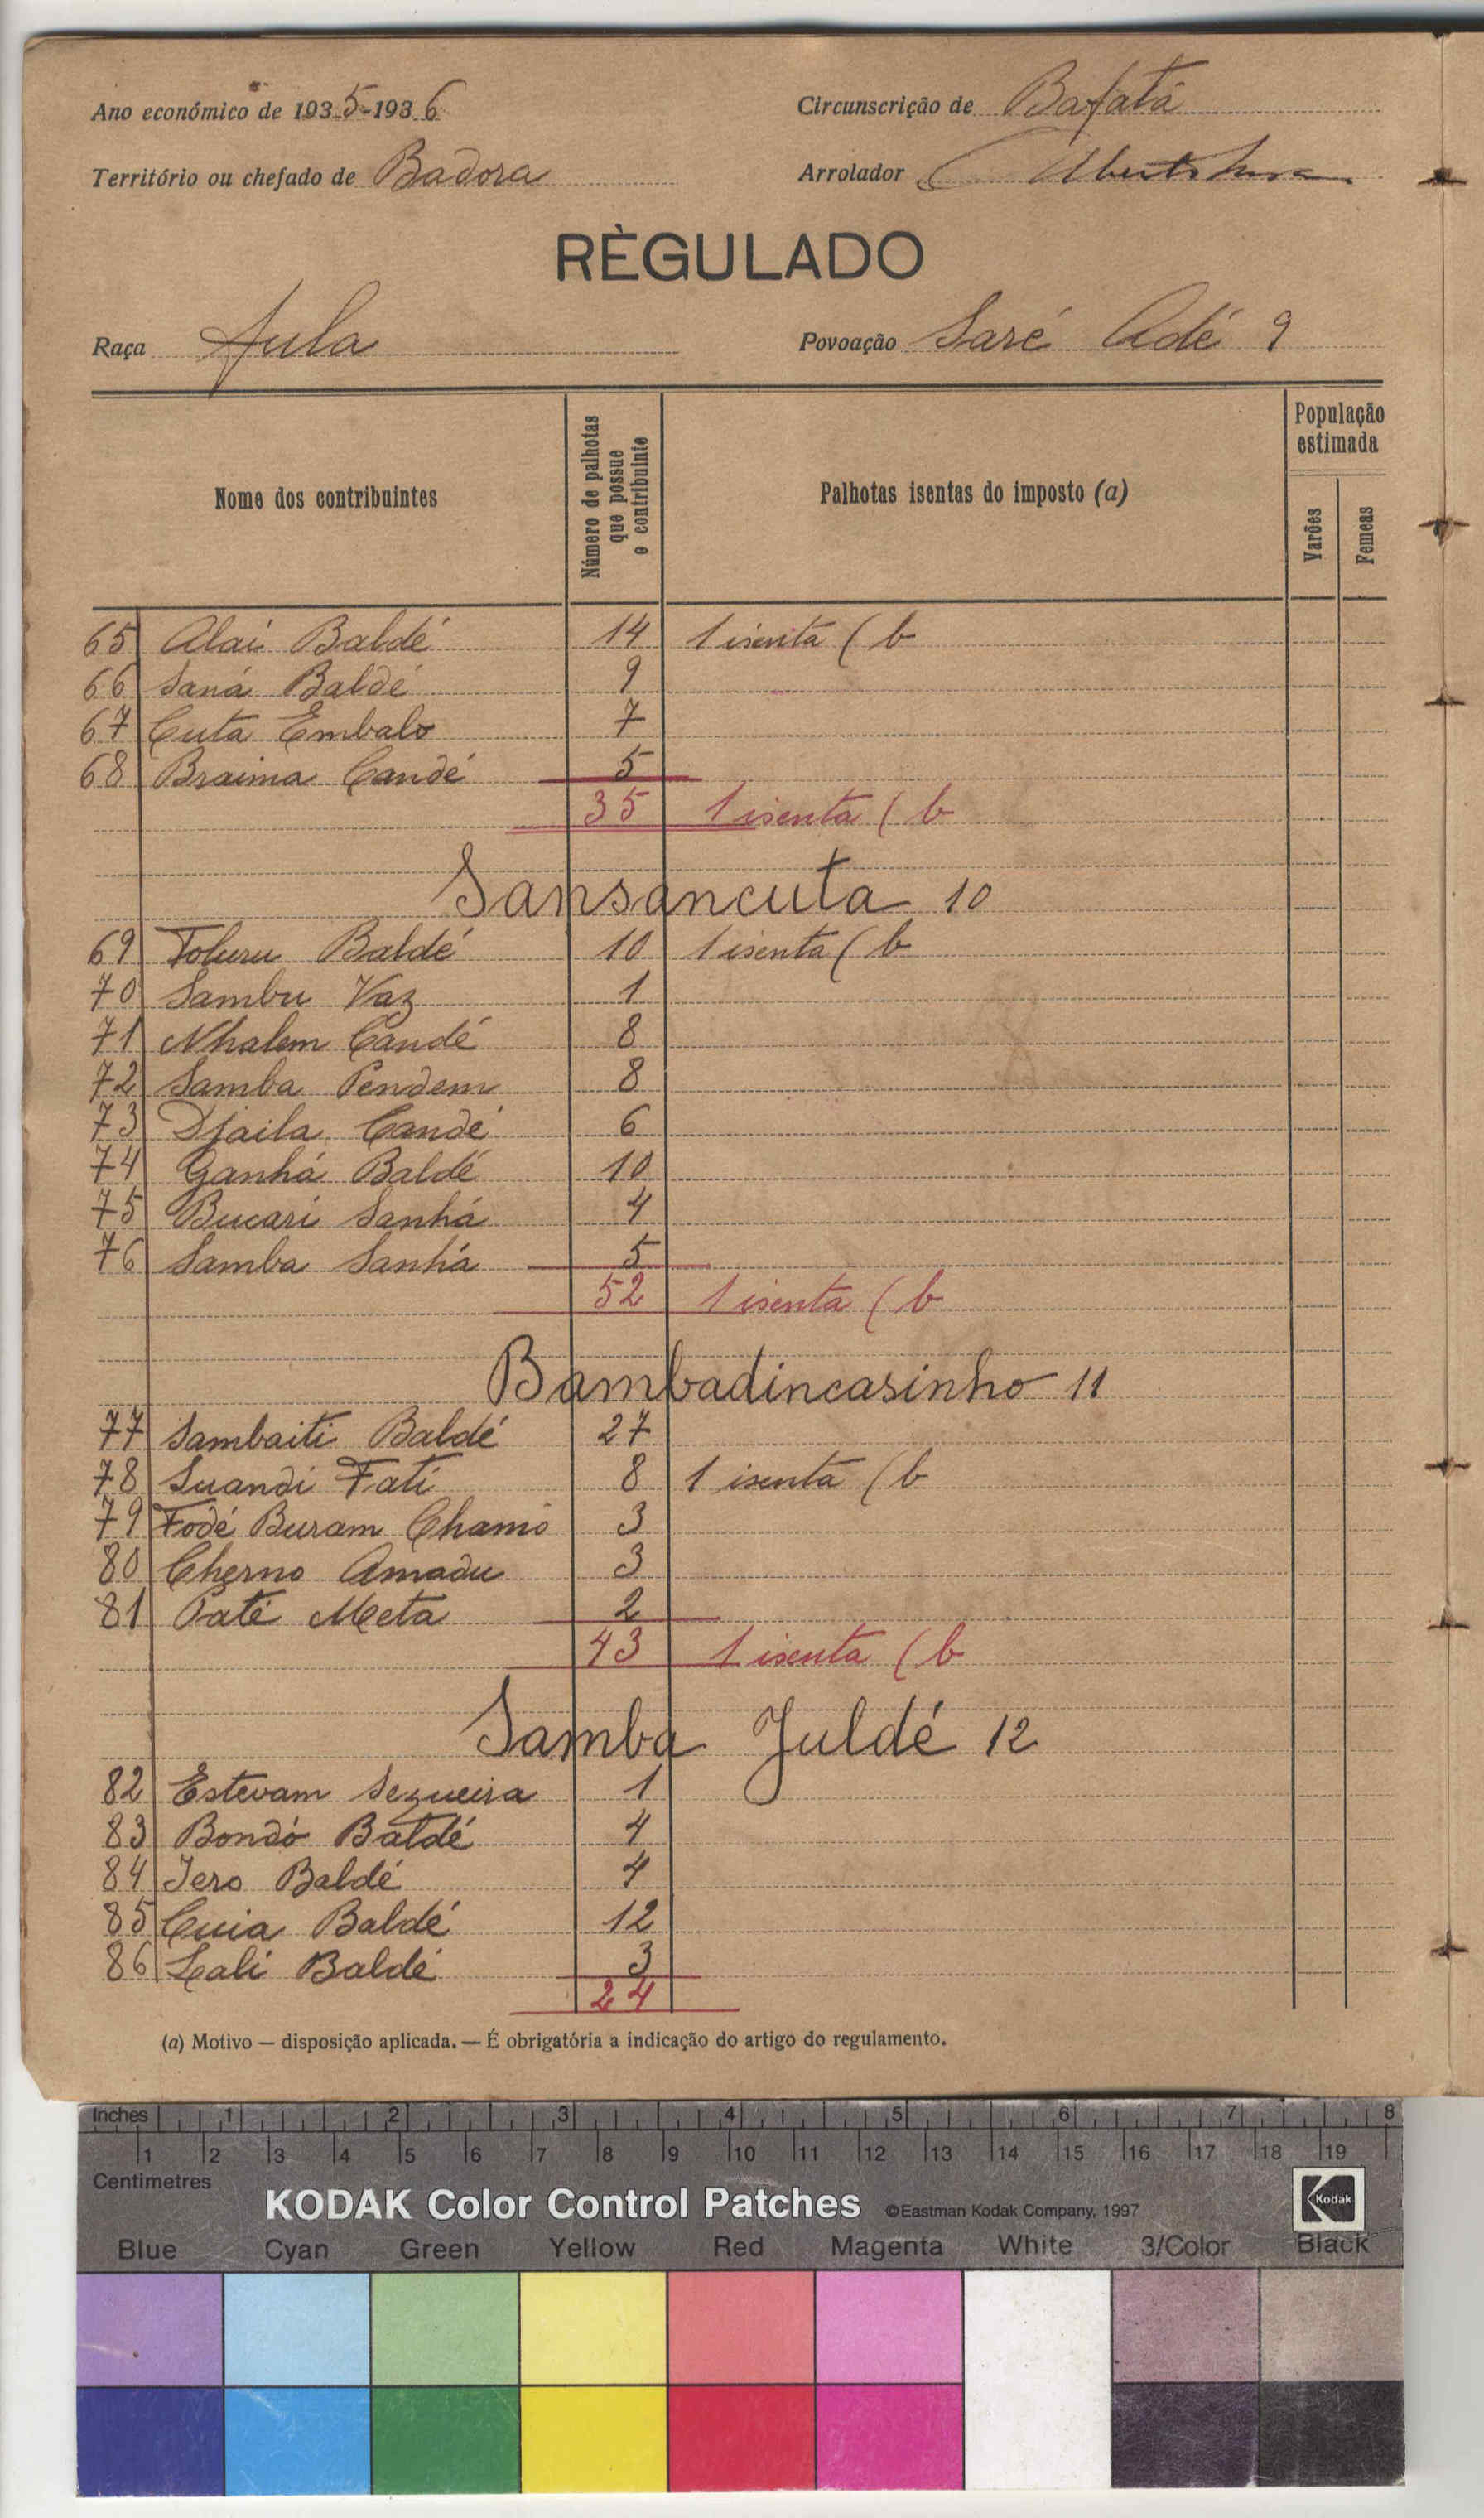 Ano económico de 1935-1936
Circunscrição de Bafatá
Território ou chefado de Badora
Arrolador
RÈGULADO
Raça Fula
Povoação Saré Adé 9
Nome dos contribuintes
Número de palhotas que possue o contribuinte
Palhotas isentas do imposto (a)
População estimada
Varões
Femeas
65 Alai Baldé 14 1 isenta (b
66 Saná Baldé 9
67 Cuta Embalo 7
68 Braima Candé 5
35 1 isenta (b
Sansancuta 10
69 Toluru Baldé 10 1 isenta (b
70 Sambu Vaz 1
71 Nhalem Candé 8
72 Samba Pendem 8
73 Djaila Candé 6
74 Ganhá Baldé 10
75 Bucari Sanhá 4
76 Samba Sanhá 5
52 1 isenta (b
Bambadincasinho 11
77 Sambaiti Baldé 27
78 Suandi Fati 8 1 isenta (b
79 Fodé Buram Chamo 3
80 Cherno Amadu 3
81 Paté Meta 2
43 1 isenta (b
Samba Juldé 12
82 Estevam Sequeira 1
83 Bondó Baldé 4
84 Iero Baldé 4
85 Cuia Baldé 12
86 Lali Baldé 3
24
(a) Motivo — disposição aplicada. — É obrigatória a indicação do artigo do regulamento.
Inches 1 2 3 4 5 6 7 8
1 2 3 4 5 6 7 8 9 10 11 12 13 14 15 16 17 18 19
Centimetres
KODAK Color Control Patches ©Eastman Kodak Company, 1997 Kodak
Blue Cyan Green Yellow Red Magenta White 3/Color Black